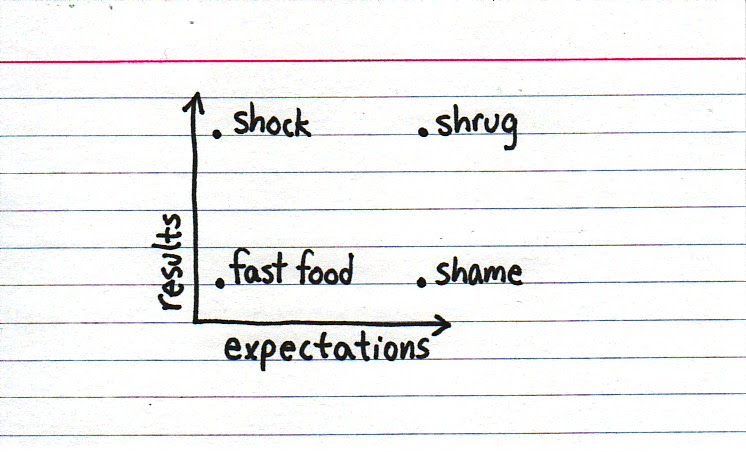 shock
shrug
fast food
shame
results
expectations